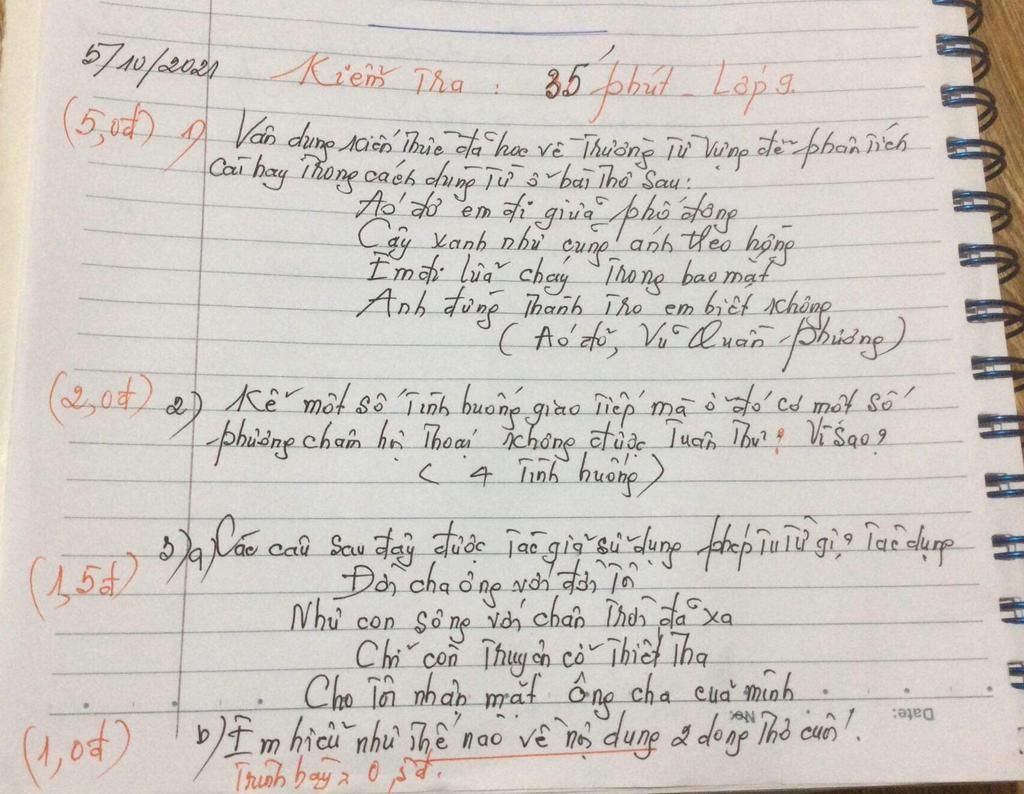 5/10/2021 Kiểm Tra : 35 phút - Lớp 9.
(5,0đ) 1) Vận dụng kiến thức đã học về Trường Từ Vựng để phân tích
Cái hay trong cách dùng từ ở bài thơ sau:
Áo đỏ em đi giữa phố đông
Cây xanh như cũng ánh theo hồng
Em đi lửa cháy trong bao mắt
Anh đứng thành tro em biết không
( Áo đỏ, Vũ Quần Phương)
(2,0đ) 2) Kể một số tình huống giao tiếp mà ở đó có một số
phương châm hội thoại không được tuân thủ? Vì sao?
( 4 tình huống)
3) a) Các câu sau đây được tác giả sử dụng phép tu từ gì? Tác dụng
(1,5đ) Đời cha ông với đời tôi
Như con sông với chân trời đã xa
Chỉ còn truyện cổ thiết tha
Cho tôi nhận mặt ông cha của mình
Date: No.
(1,0đ) b) Em hiểu như thế nào về nội dung 2 dòng thơ cuối!
Trình bày = 0,5đ.